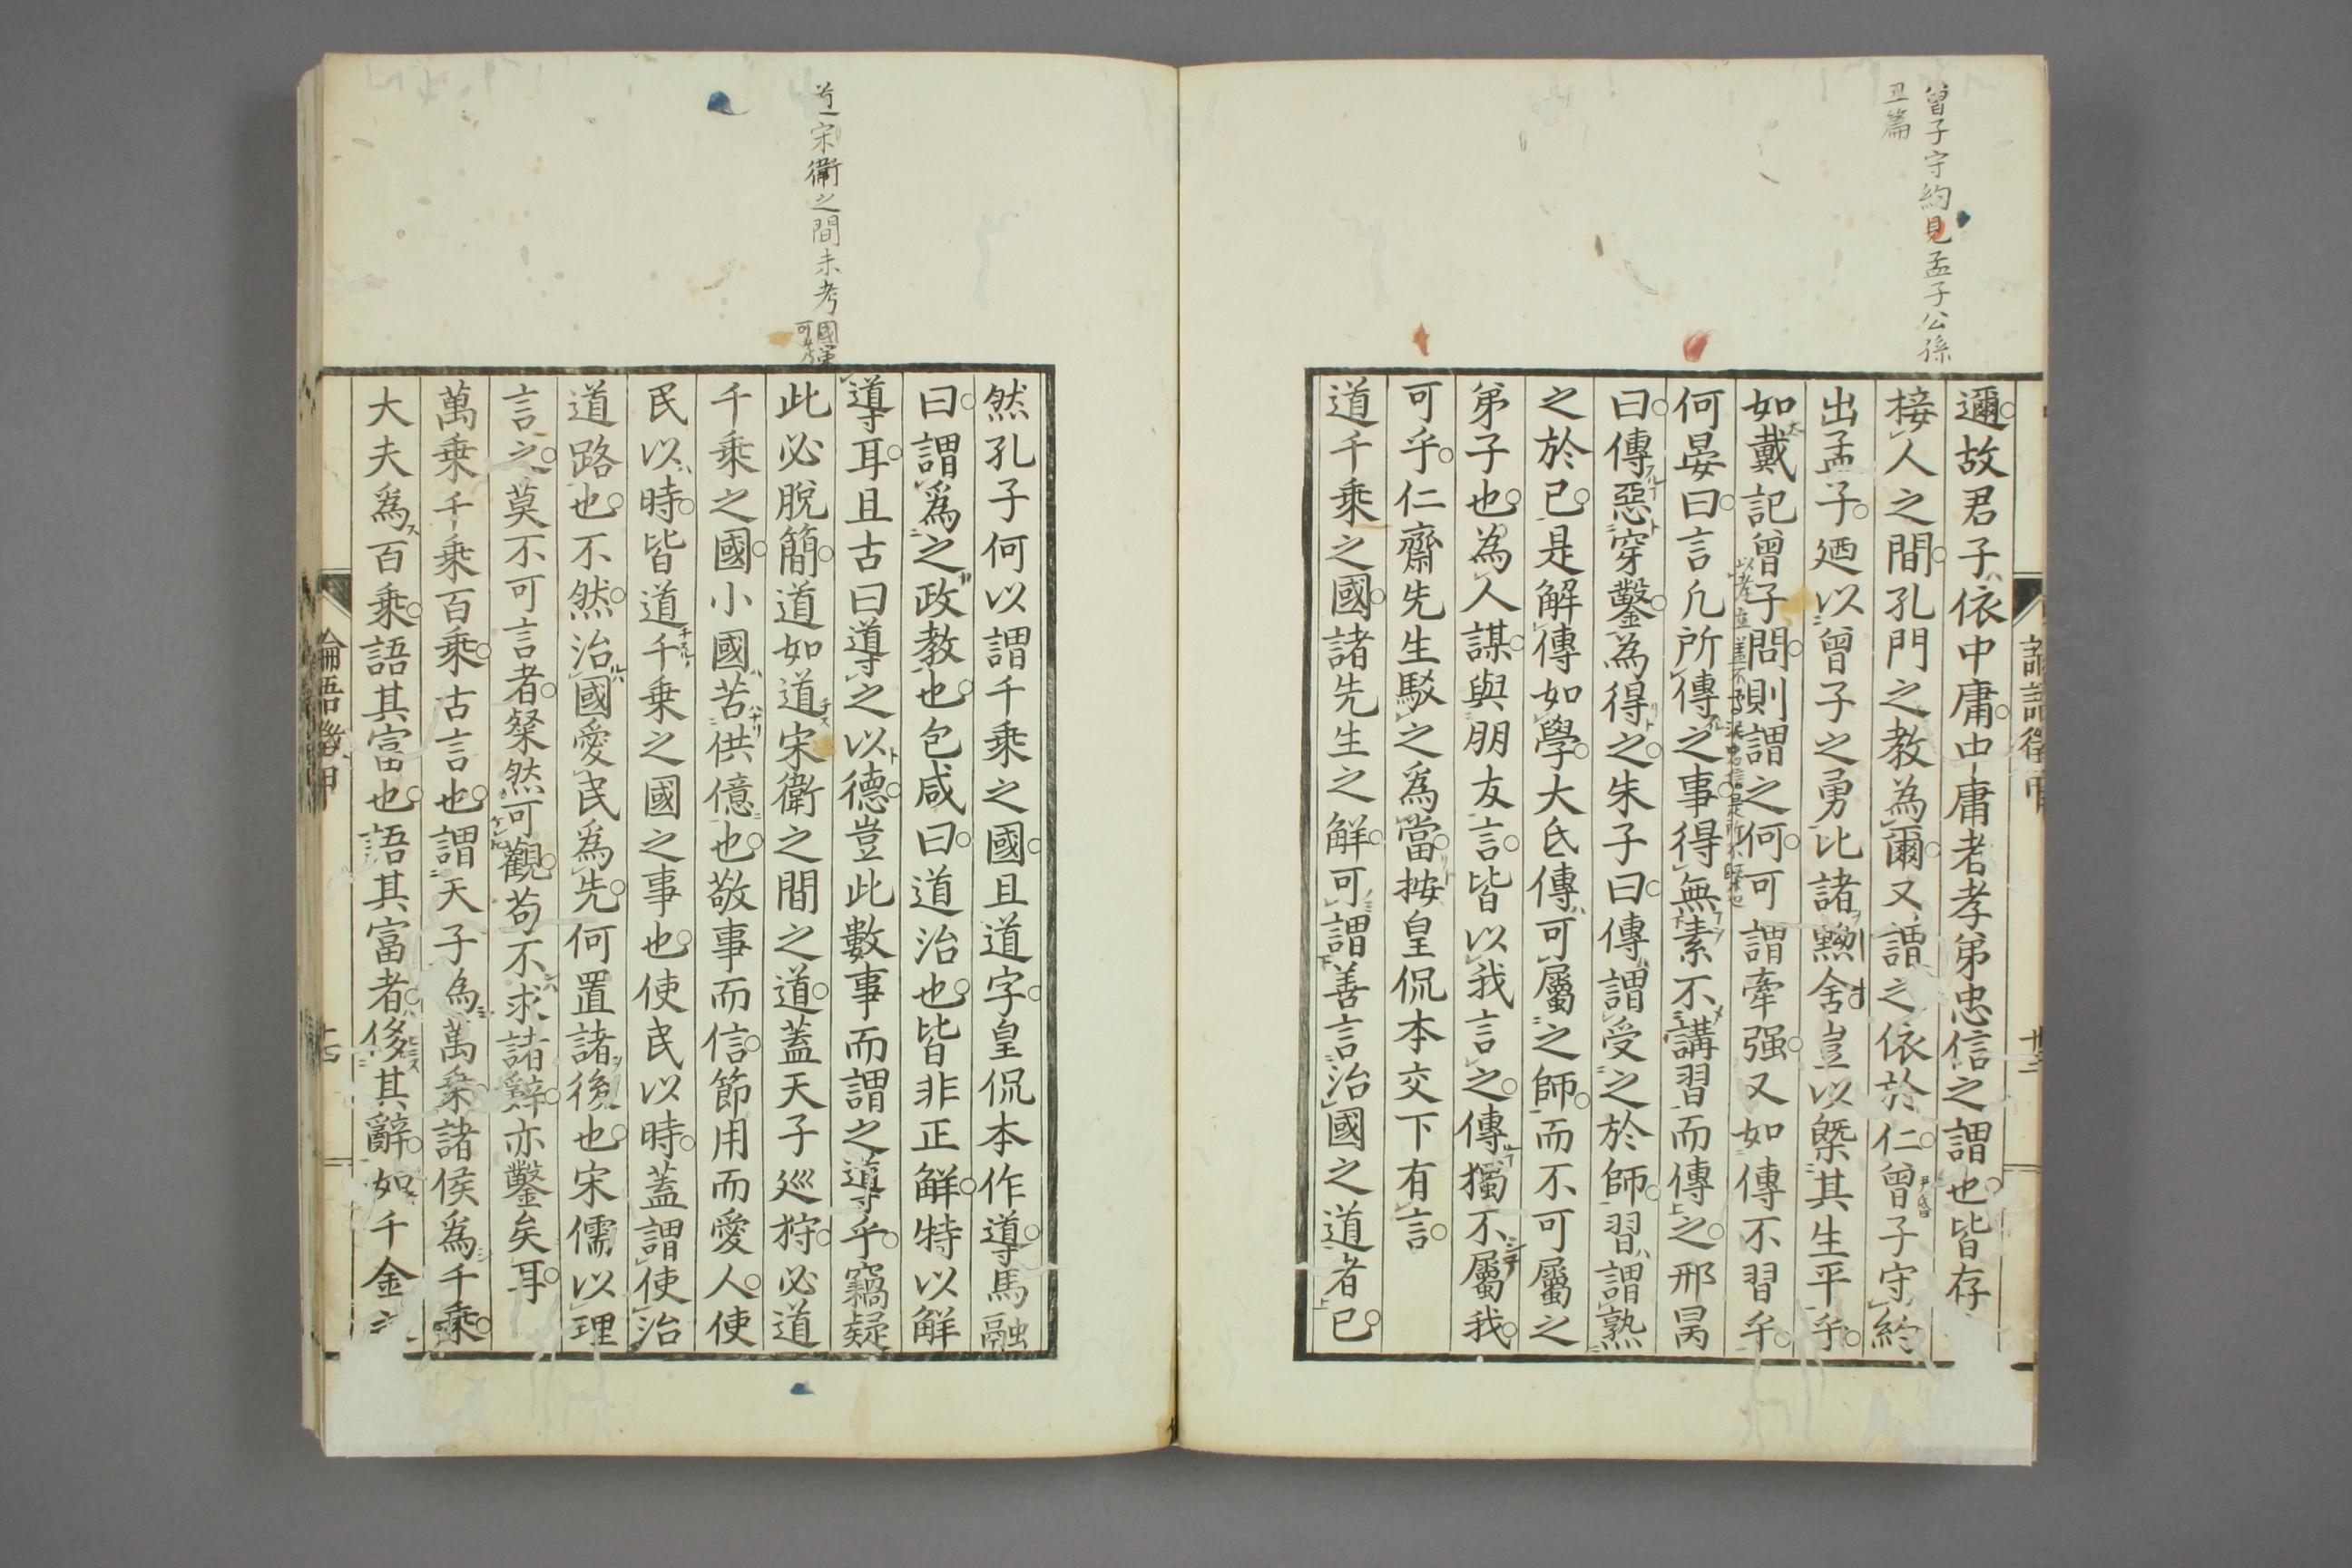 曾子守約見孟子公孫
丑篇
邇故君子依中庸中庸者孝弟忠信之謂也皆存
接人之間孔門之教為爾又謂之依於仁曾子守約
出孟子廼以曾子之勇比諸黝舍豈以槩其生平乎
如戴記曾子問則謂之何可謂牽强又如傳不習乎
何晏曰言凡所傳之事得無素不講習而傳之邢昺
曰傳惡穿鑿為得之朱子曰傳謂受之於師習謂熟
之於已是解傳如學大氐傳可屬之師而不可屬之
弟子也為人謀與朋友言皆以我言之傳獨不屬我
可乎仁齋先生駁之為當按皇侃本交下有言
道千乘之國諸先生之解可謂善言治國之道者已
論語徵甲
道宋衛之間未考國策
可考
然孔子何以謂千乘之國且道字皇侃本作導馬融
曰謂為之政教也包咸曰道治也皆非正解特以解
導耳且古曰導之以德豈此數事而謂之導乎竊疑
此必脫簡道如道宋衛之間之道蓋天子巡狩必道
千乘之國小國苦供億也敬事而信節用而愛人使
民以時皆道千乘之國之事也使民以時蓋謂使治
道路也不然治國愛民為先何置諸後也宋儒以理
言之莫不可言者粲然可觀苟不求諸辭亦鑿矣耳
萬乘千乘百乘古言也謂天子為萬乘諸侯為千乘
大夫為百乘語其富也語其富者侈其辭如千金之
論語徵甲